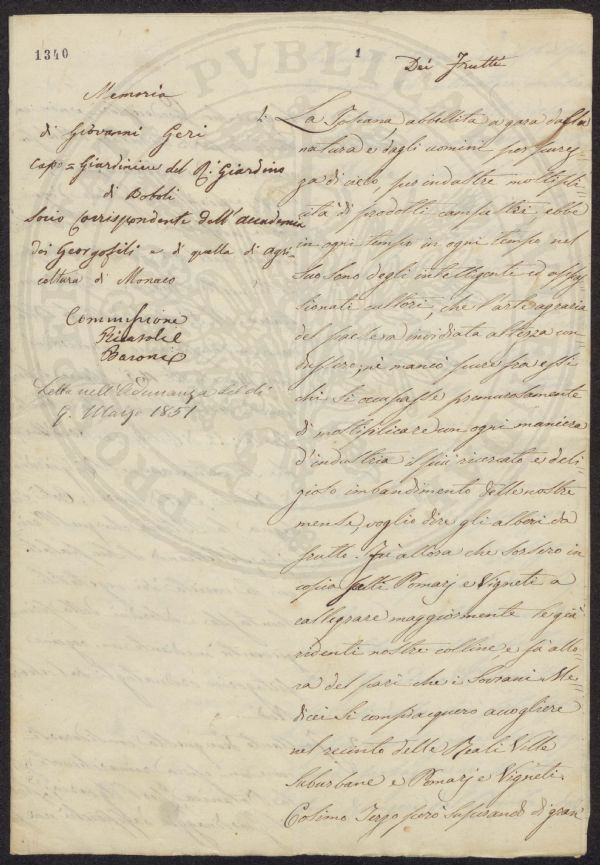 1340
1
Dei Frutti
Memoria
di Giovanni Geri
capo=Giardiniere del R. Giardino
di Boboli
Socio Corrispondente dell'Accademia
dei Georgofili e di quella di Agri
coltura di Monaco
Commissione
Ricasoli
Baroni
Letta nell'Adunanza del dì
9. Marzo 1851
La Toscana, abbellita a gara dalla
natura e dagli uomini per purez
za di cielo, per industre moltipli
cità di prodotti campestri, ebbe
in ogni tempo in ogni tempo nel
suo seno degli intelligenti ed appas
sionati cultori, che l'arte agraria
del paese a invidiata altezza con
dussero; nè mancò pure fra essi
chi si occupasse premurosamente
di moltiplicare con ogni maniera
d'industria il più ricercato e deli
zioso imbandimento delle nostre
mense, voglio dire gli alberi da
frutto. Fu allora che sorsero in
copia Pomarj e Vigneti a
rallegrare maggiormente le già
ridenti nostre colline e fu allo
ra del pari che i Sovrani Me
dicei si compiacquero accogliere
nel recinto delle Reali Ville
Suburbane e Pomarj e Vigneti.
Cosimo Terzo però superando di gran
PUBLICA